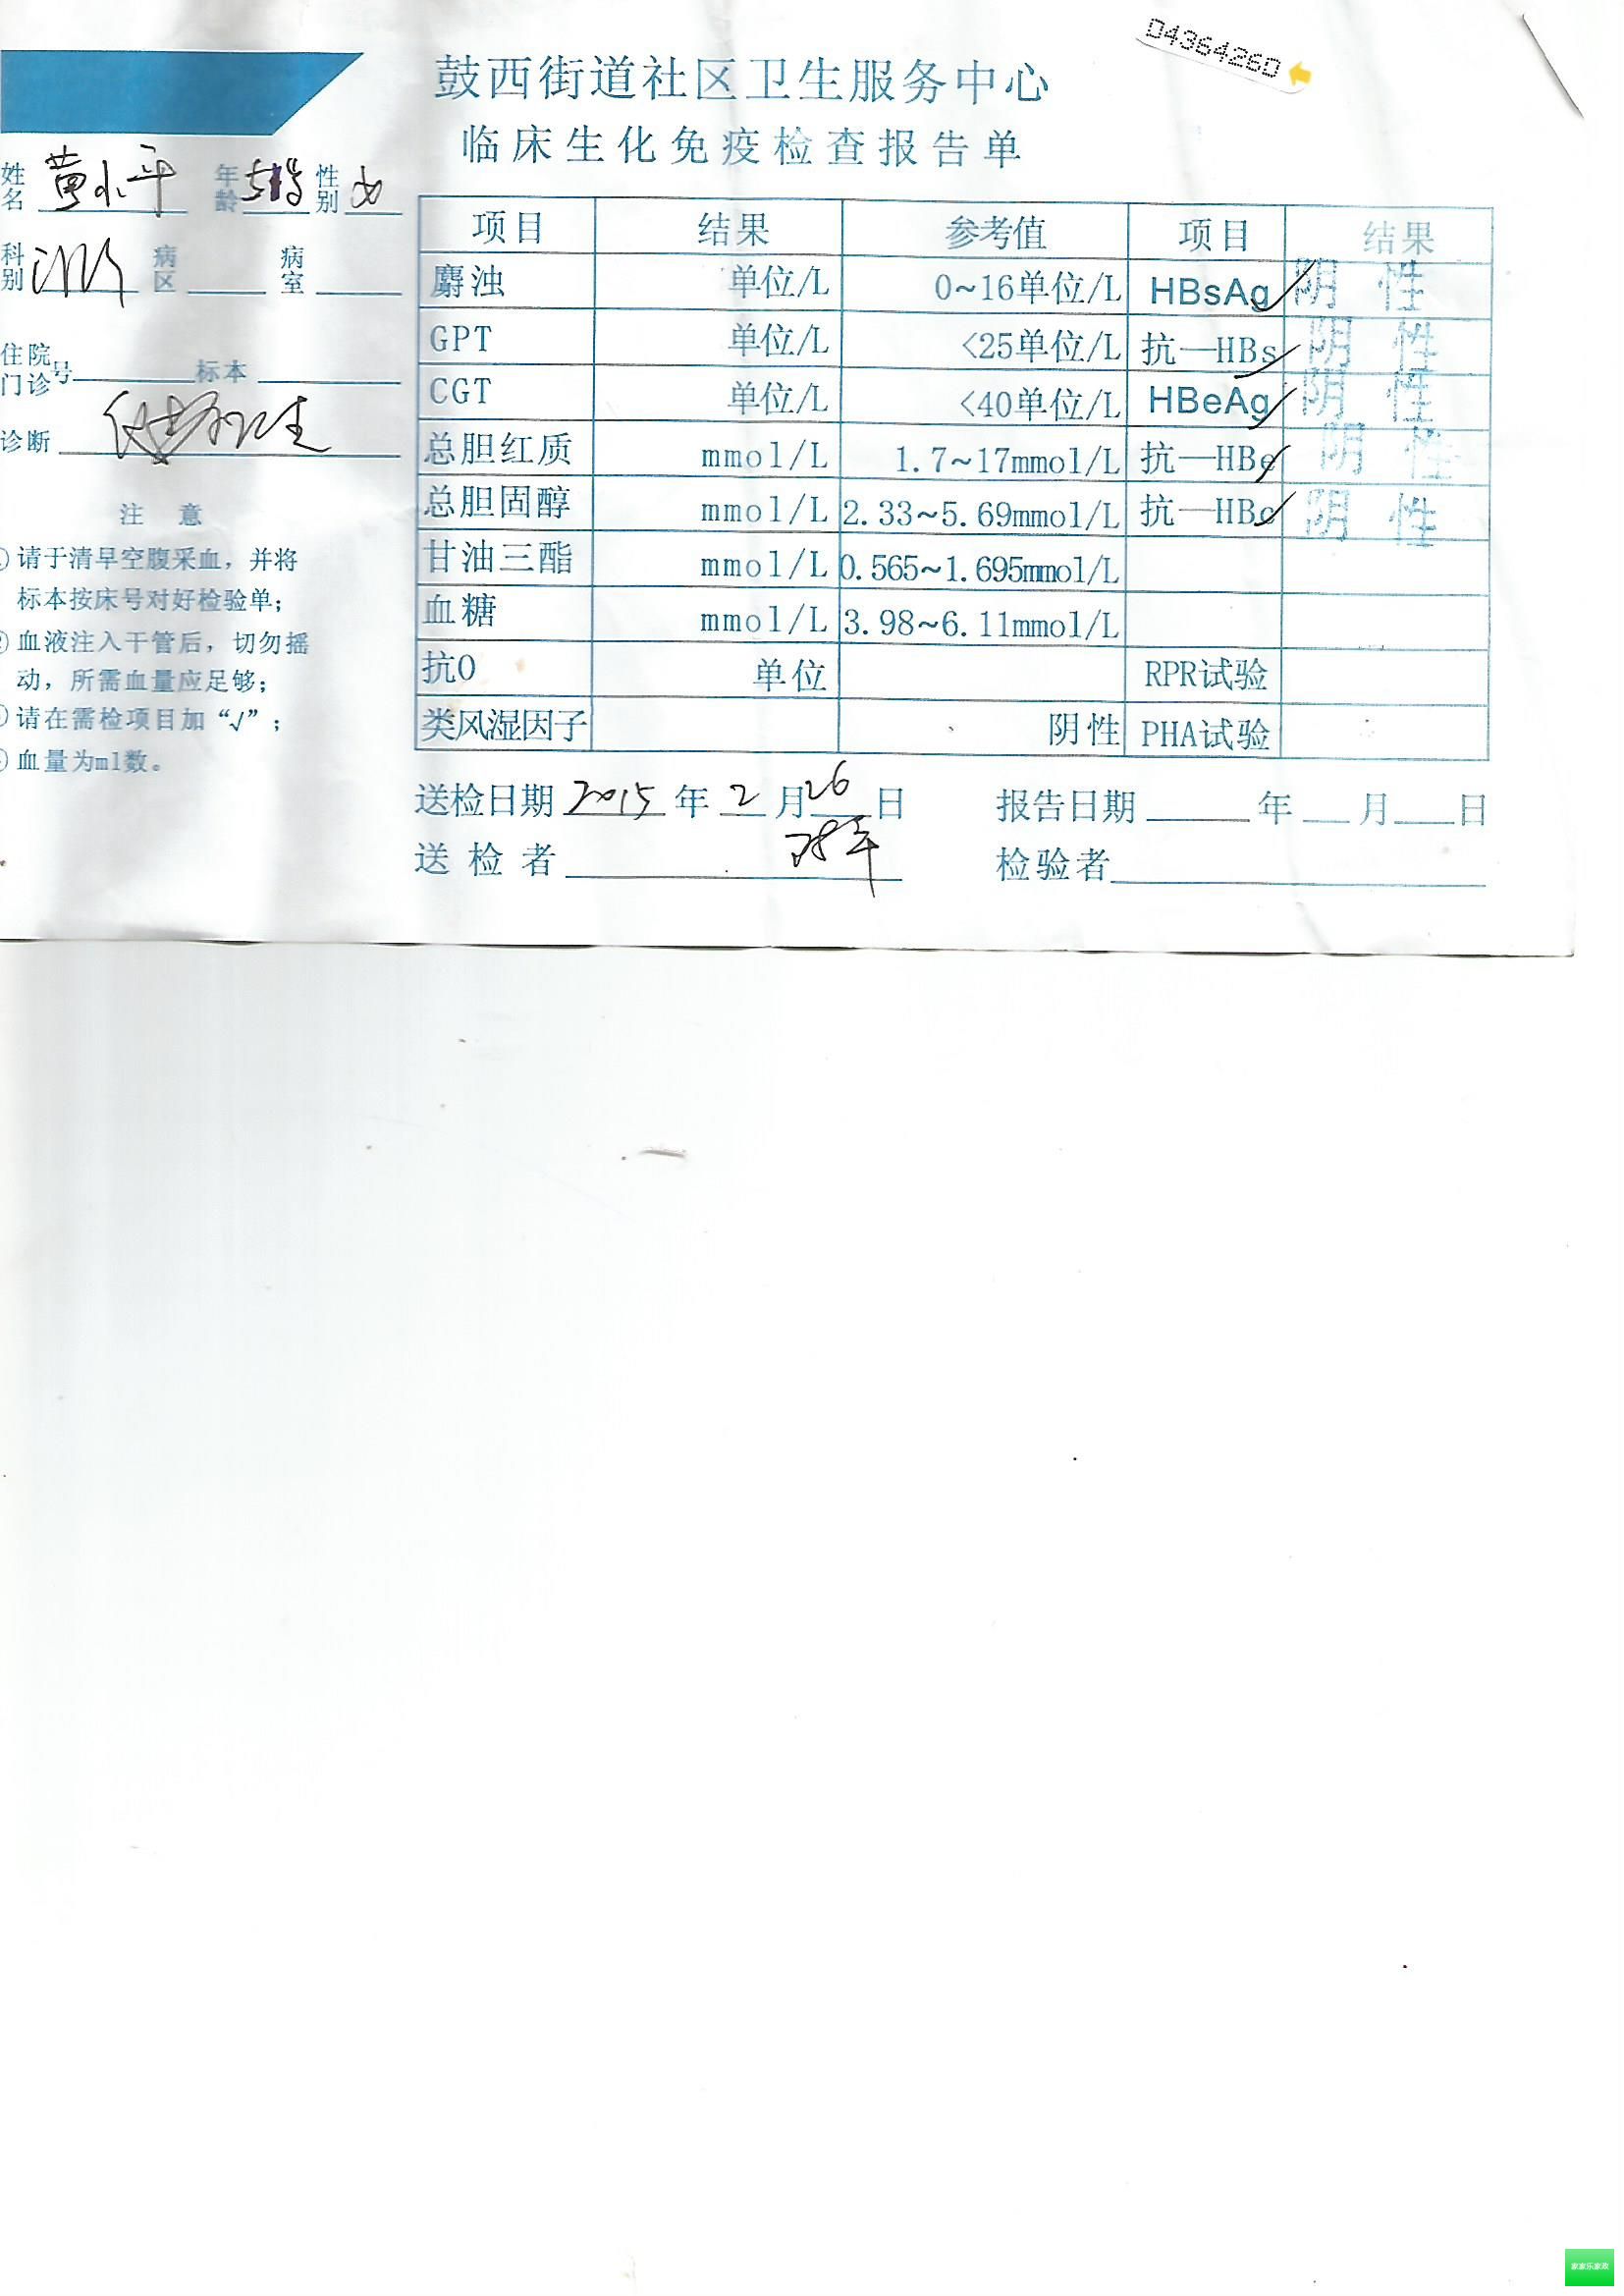 D4364260
鼓西街道社区卫生服务中心
临床生化免疫检查报告单
姓名 黄水平 年龄 性别 女
科别 病区 病室
住院门诊号 标本
诊断
注 意
请于清早空腹采血，并将
标本按床号对好检验单；
血液注入干管后，切勿摇
动，所需血量应足够；
请在需检项目加“√”；
血量为ml数。
项目 结果 参考值 项目 结果
麝浊 单位/L 0~16单位/L HBsAg ✓ 阴 性
GPT 单位/L <25单位/L 抗—HBs ✓ 阴 性
CGT 单位/L <40单位/L HBeAg ✓ 阴 性
总胆红质 mmol/L 1.7~17mmol/L 抗—HBe ✓ 阴 性
总胆固醇 mmol/L 2.33~5.69mmol/L 抗—HBc ✓ 阴 性
甘油三酯 mmol/L 0.565~1.695mmol/L
血糖 mmol/L 3.98~6.11mmol/L
抗O 单位 RPR试验
类风湿因子 阴性 PHA试验
送检日期 2015 年 2 月 26 日 报告日期 年 月 日
送检者 检验者